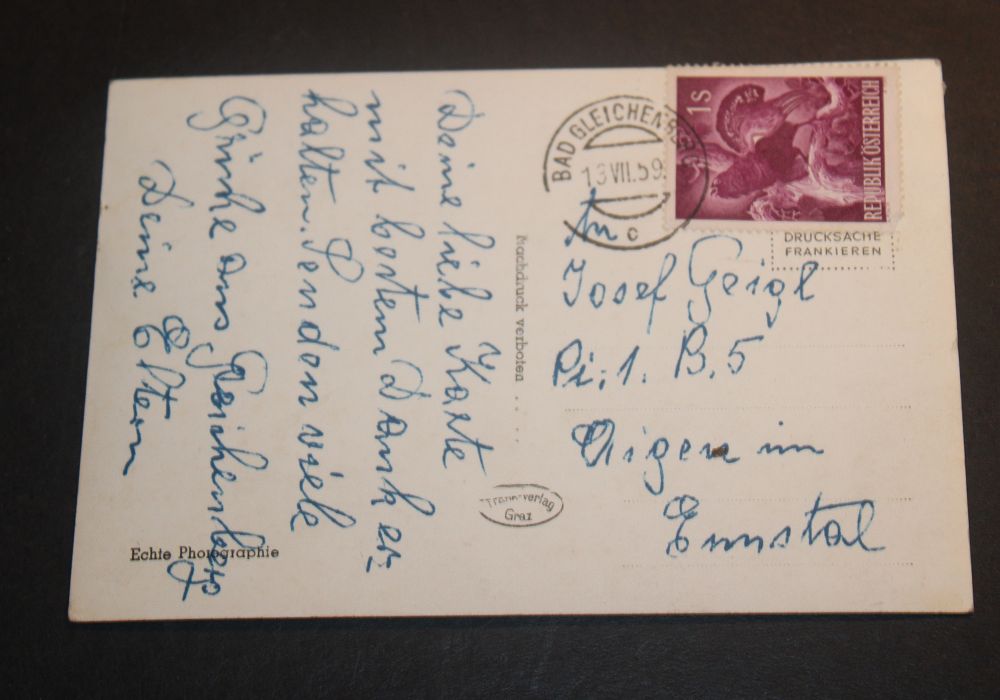 Deine liebe Karte
mit besten Dank er-
halten. Senden viele
Grüße aus Gleichenberg
Deine Eltern
Echte Photographie
Nachdruck verboten
Graz
BAD GLEICHENBERG
13.VII.59
c
1S
REPUBLIK ÖSTERREICH
DRUCKSACHE
FRANKIEREN
An
Josef Geigl
Pi. 1. B. 5
Aigen im
Ennstal